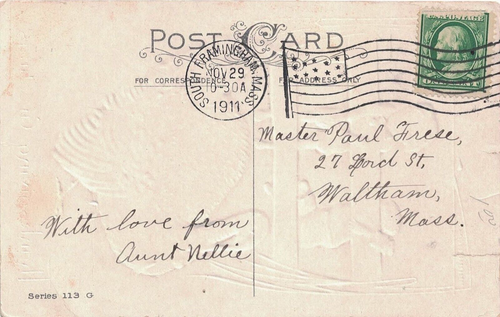 POST CARD
FOR CORRESPONDENCE
FOR ADDRESS ONLY
SOUTH FRAMINGHAM, MASS.
NOV 29
10-30A
1911
Master Paul Frese,
27 Lord St,
Waltham,
Mass.
With love from
Aunt Nellie
Series 113 G